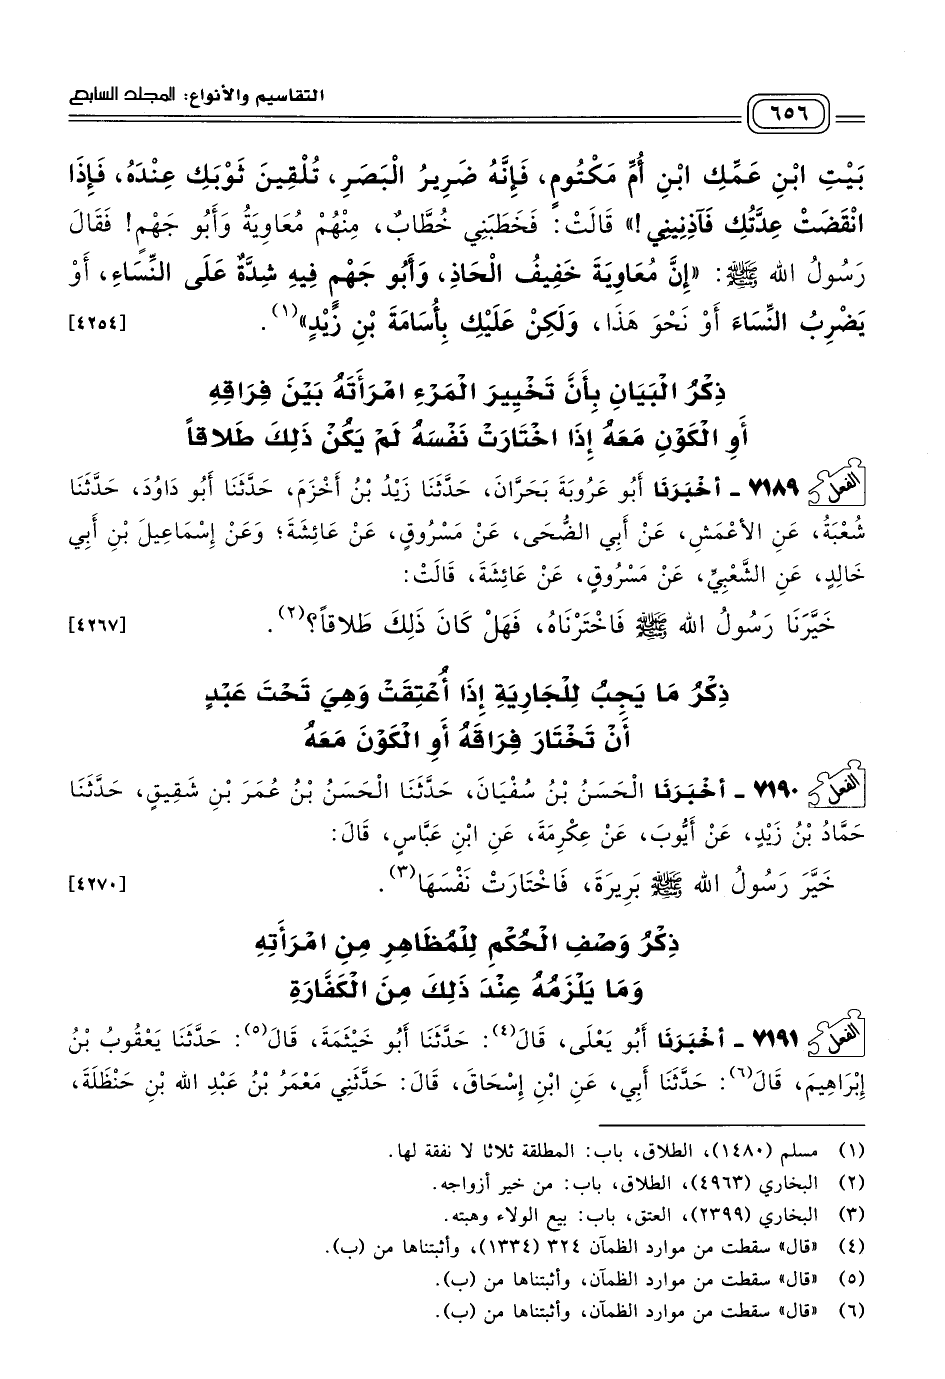 التقاسيم والأنواع: المجلد السابع
٦٥٦
بَيْتِ ابْنِ عَمِّكِ ابْنِ أُمِّ مَكْتُومٍ، فَإِنَّهُ ضَرِيرُ الْبَصَرِ، تُلْقِينَ ثَوْبَكِ عِنْدَهُ، فَإِذَا
انْقَضَتْ عِدَّتُكِ فَآذِنِينِي!» قَالَتْ: فَخَطَبَنِي خُطَّابٌ، مِنْهُمْ مُعَاوِيَةُ وَأَبُو جَهْمٍ! فَقَالَ
رَسُولُ الله ﷺ: «إِنَّ مُعَاوِيَةَ خَفِيفُ الْحَاذِ، وَأَبُو جَهْمٍ فِيهِ شِدَّةٌ عَلَى النِّسَاءِ، أَوْ
يَضْرِبُ النِّسَاءَ أَوْ نَحْوَ هَذَا، وَلَكِنْ عَلَيْكِ بِأُسَامَةَ بْنِ زَيْدٍ»(١). [٤٢٥٤]
ذِكْرُ الْبَيَانِ بِأَنَّ تَخْيِيرَ الْمَرْءِ امْرَأَتَهُ بَيْنَ فِرَاقِهِ
أَوِ الْكَوْنِ مَعَهُ إِذَا اخْتَارَتْ نَفْسَهُ لَمْ يَكُنْ ذَلِكَ طَلَاقاً
الفعل ٧١٨٩ - أَخْبَرَنَا أَبُو عَرُوبَةَ بَحَرَّانَ، حَدَّثَنَا زَيْدُ بْنُ أَخْزَمَ، حَدَّثَنَا أَبُو دَاوُدَ، حَدَّثَنَا
شُعْبَةُ، عَنِ الأَعْمَشِ، عَنْ أَبِي الضُّحَى، عَنْ مَسْرُوقٍ، عَنْ عَائِشَةَ؛ وَعَنْ إِسْمَاعِيلَ بْنِ أَبِي
خَالِدٍ، عَنِ الشَّعْبِيِّ، عَنْ مَسْرُوقٍ، عَنْ عَائِشَةَ، قَالَتْ:
خَيَّرَنَا رَسُولُ الله ﷺ فَاخْتَرْنَاهُ، فَهَلْ كَانَ ذَلِكَ طَلَاقاً؟(٢). [٤٢٦٧]
ذِكْرُ مَا يَجِبُ لِلْجَارِيَةِ إِذَا أُعْتِقَتْ وَهِيَ تَحْتَ عَبْدٍ
أَنْ تَخْتَارَ فِرَاقَهُ أَوِ الْكَوْنَ مَعَهُ
الفعل ٧١٩٠ - أَخْبَرَنَا الْحَسَنُ بْنُ سُفْيَانَ، حَدَّثَنَا الْحَسَنُ بْنُ عُمَرَ بْنِ شَقِيقٍ، حَدَّثَنَا
حَمَّادُ بْنُ زَيْدٍ، عَنْ أَيُّوبَ، عَنْ عِكْرِمَةَ، عَنِ ابْنِ عَبَّاسٍ، قَالَ:
خَيَّرَ رَسُولُ الله ﷺ بَرِيرَةَ، فَاخْتَارَتْ نَفْسَهَا(٣). [٤٢٧٠]
ذِكْرُ وَصْفِ الْحُكْمِ لِلْمُظَاهِرِ مِنِ امْرَأَتِهِ
وَمَا يَلْزَمُهُ عِنْدَ ذَلِكَ مِنَ الْكَفَّارَةِ
الفعل ٧١٩١ - أَخْبَرَنَا أَبُو يَعْلَى، قَالَ(٤): حَدَّثَنَا أَبُو خَيْثَمَةَ، قَالَ(٥): حَدَّثَنَا يَعْقُوبُ بْنُ
إِبْرَاهِيمَ، قَالَ(٦): حَدَّثَنَا أَبِي، عَنِ ابْنِ إِسْحَاقَ، قَالَ: حَدَّثَنِي مَعْمَرُ بْنُ عَبْدِ الله بْنِ حَنْظَلَةَ،
(١) مسلم (١٤٨٠)، الطلاق، باب: المطلقة ثلاثا لا نفقة لها.
(٢) البخاري (٤٩٦٣)، الطلاق، باب: من خير أزواجه.
(٣) البخاري (٢٣٩٩)، العتق، باب: بيع الولاء وهبته.
(٤) «قال» سقطت من موارد الظمآن ٣٢٤ (١٣٣٤)، وأثبتناها من (ب).
(٥) «قال» سقطت من موارد الظمآن، وأثبتناها من (ب).
(٦) «قال» سقطت من موارد الظمآن، وأثبتناها من (ب).